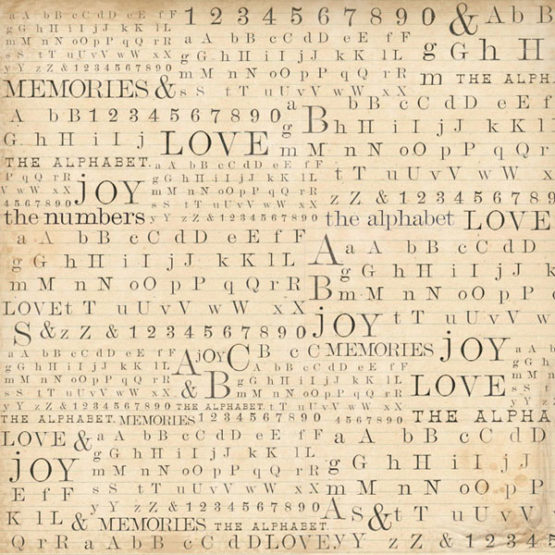 a A b B c C d D e E f F 1 2 3 4 5 6 7 8 9 0 & A b B
g G h H i I j J k K l L a A b B c C d D e E f F
m M n N o O p P q Q r R g G h H i I j J k K l L g G h H
s S t T u U v V w W x X m M n N o O p P q Q r R m THE ALPH
y Y z Z & 1 2 3 4 5 6 7 8 9 0
MEMORIES & s S t T u U v V w W x X
A b B 1 2 3 4 5 6 7 8 9 0 a B b B c C d D e E f F
G h H i I j LOVE g h H i I j J k K l
THE ALPHABET. a A b B c C d D e E f F m M n N o O p P q Q
p P q Q r R g G h H i I j J k K l L t T u U v V w W x
v V w W x X JOY m M n N o O p P q Q r R
4 5 6 7 8 9 0 s S t T u U v V w W x X z Z & 1 2 3 4 5 6 7 8 9
the numbers y Y z Z & 1 2 3 4 5 6 7 8 9 0 the alphabet LOVE
a A b B c C d D e E f F A a A b B c C d D
g G h H i I j J k K l L g G h H i I j J k
m M n N o O p P q Q r R B m M n N o O p P
LOVE t T u U v V w W x X JOY t T u U v V w
S & z Z & 1 2 3 4 5 6 7 8 9 0
a A b B c C d D e E f F A JOY C B c C MEMORIES JOY a A b
g G h H i I j J k K l L a A b B c C d D e E f F g G h H
m M n N o O p P q Q r R & B g G h H i I j J k K l L LOVE m M n
s S t T u U v V w W x X m M n N o O p P q Q r R
y Y z Z & 1 2 3 4 5 6 7 8 9 0 THE ALPHABET. t T u U v V w W x X
THE ALPHABET. MEMORIES 1 2 3 4 5 6 7 8 9 0 4 5 6 7 8 9 0 THE ALPHA
LOVE & a A b B c C d D e E f F a A b B c C d D
JOY g G h H i I j J k K l L g G h H i I j J
m M n N o O p P q Q r R
E e F F s S t T u U v V w W x X m M n N o O p P
K l L & y Y z Z & 1 2 3 4 5 6 7 8 9 0 A s & t T u U v V w
MEMORIES THE ALPHABET.
Q r R a A b B c C d D LOVE y Y z Z & 1 2 3 4 5